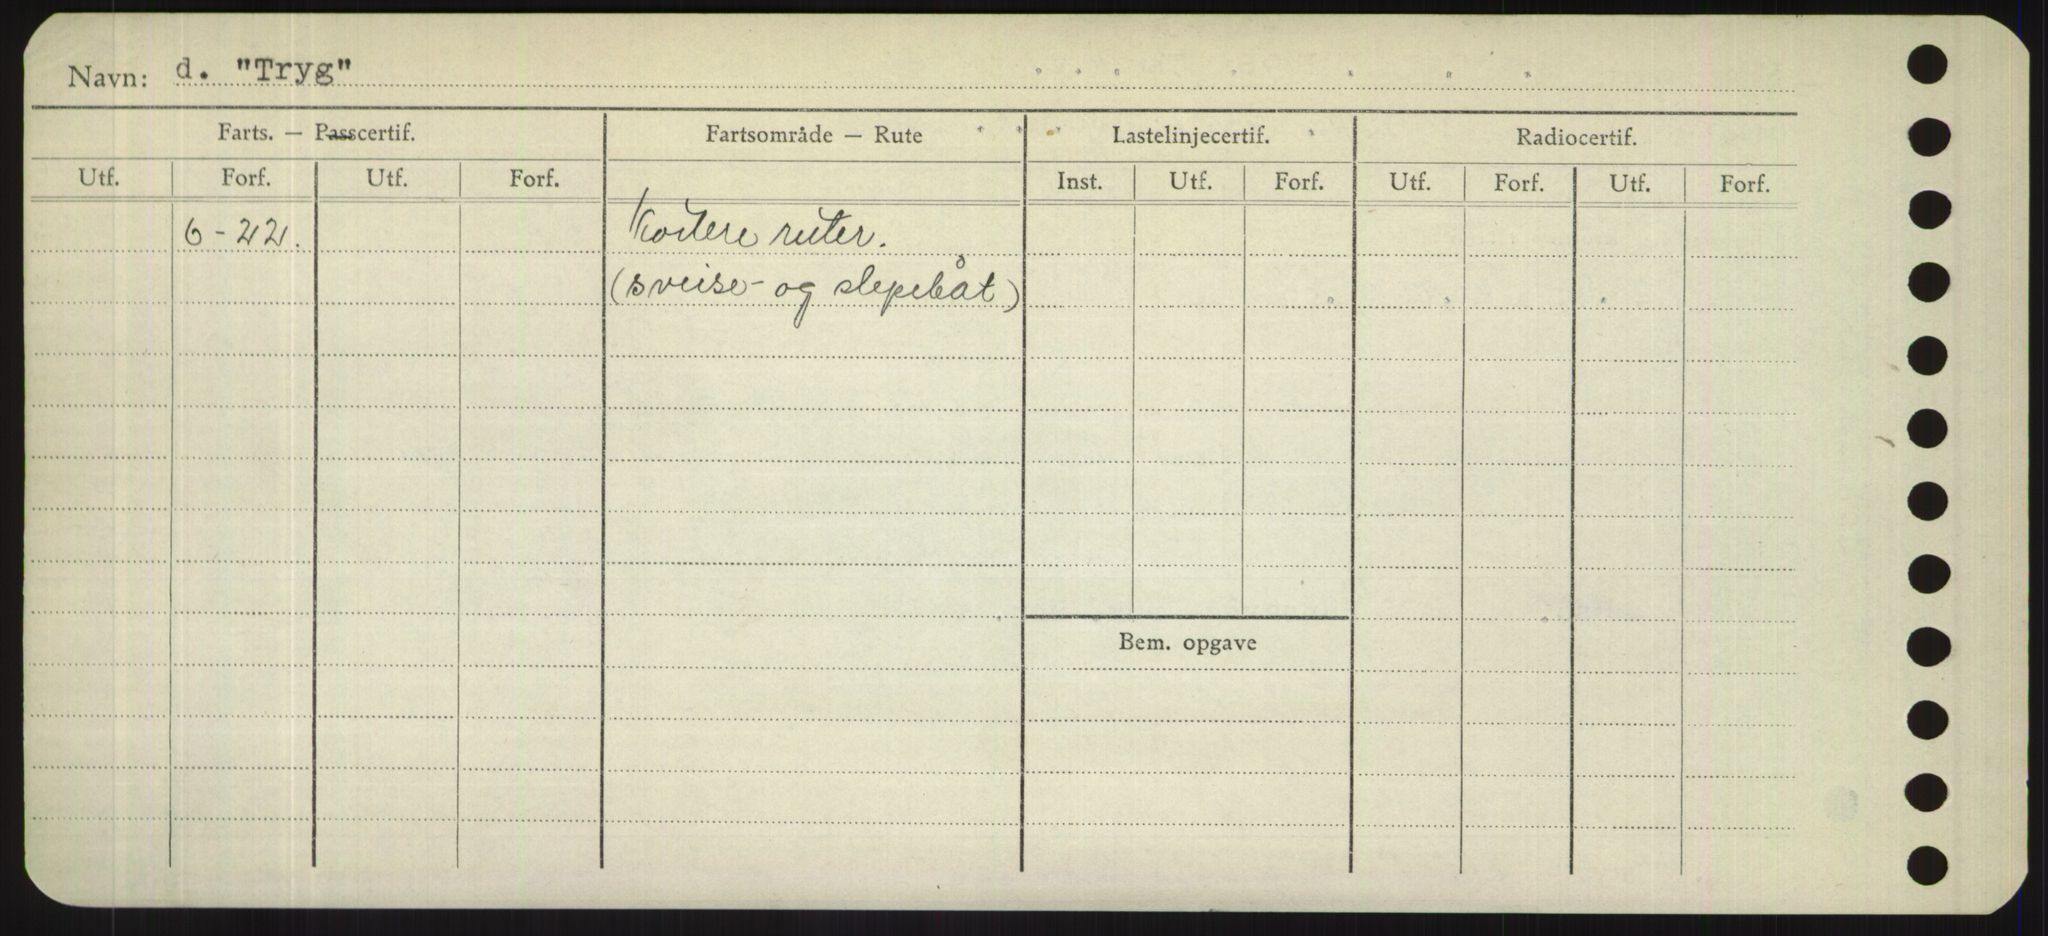 Navn: d. "Tryg"
Farts. — Passcertif. Fartsområde — Rute Lastelinjecertif. Radiocertif.
Utf. Forf. Utf. Forf. Inst. Utf. Forf. Utf. Forf. Utf. Forf.
6-22. Kortere ruter.
(sveise- og slepebåt)
Bem. opgave